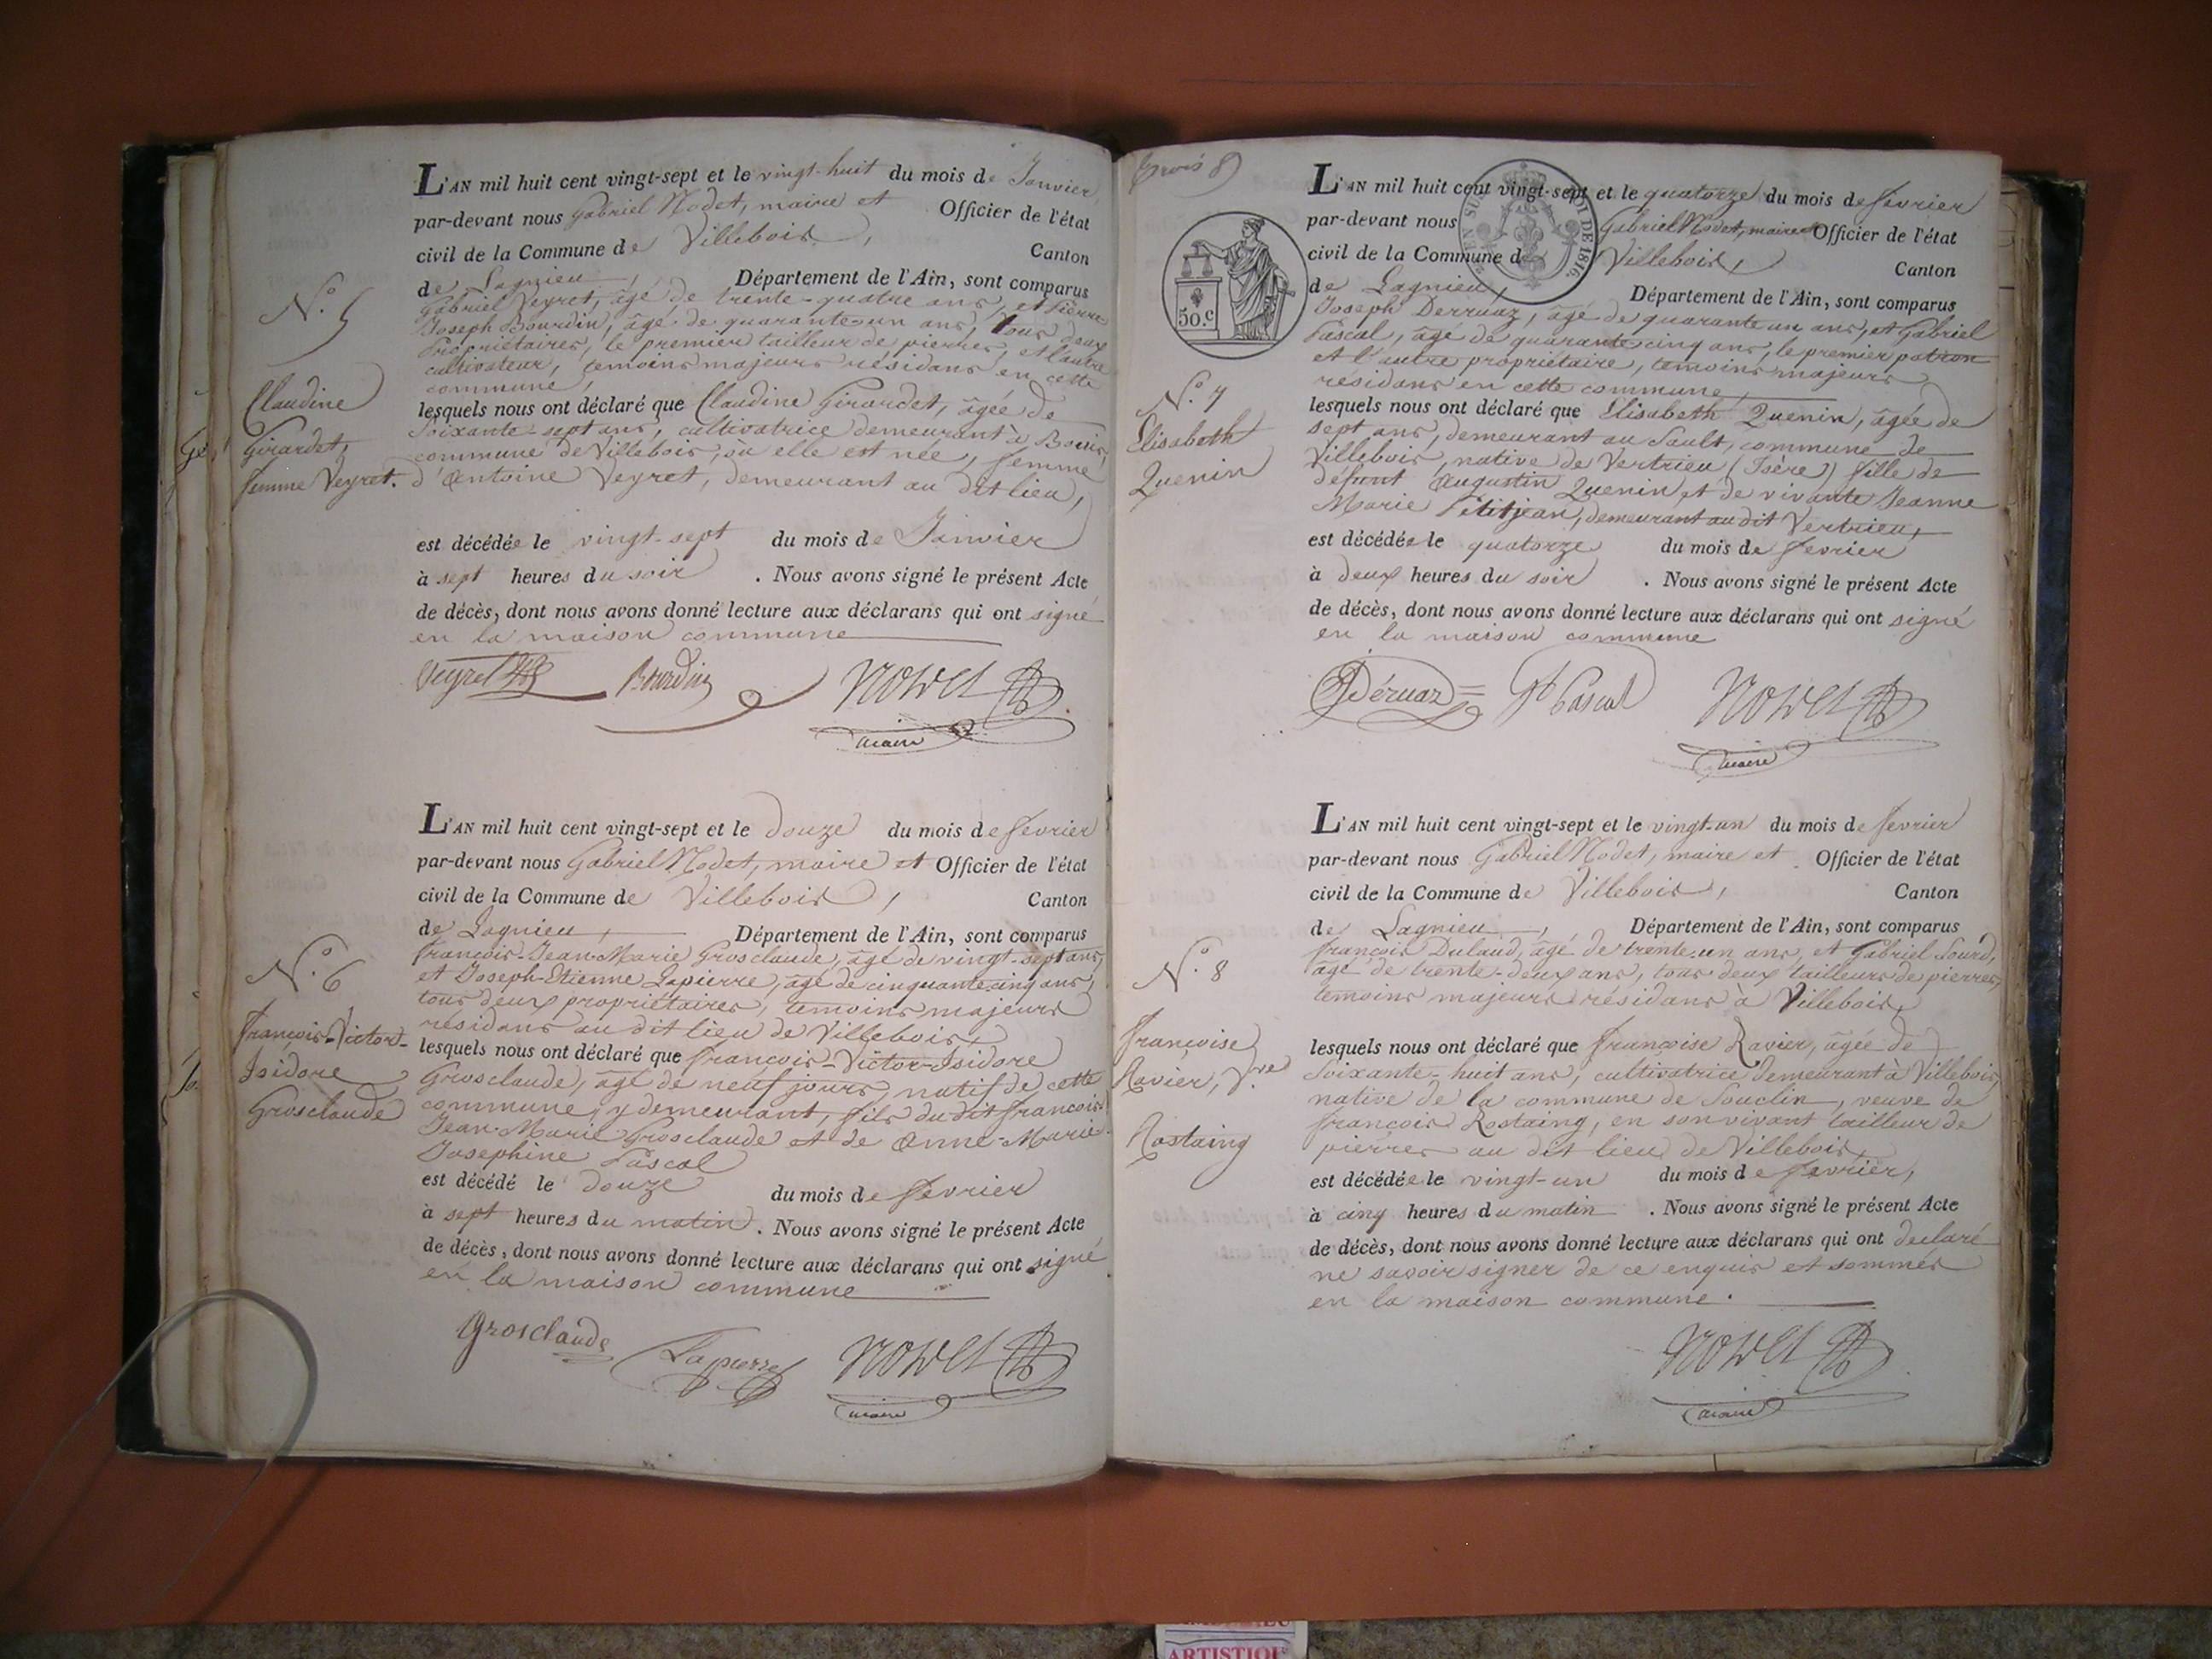 L'AN mil huit cent vingt-sept et le vingt-huit du mois de Janvier
par-devant nous Gabriel Nodet, maire et Officier de l'état
civil de la Commune de Villebois, Canton
de Lagnieu, Département de l'Ain, sont comparus
Gabriel Veyret, âgé de trente-quatre ans, et Pierre
Joseph Bourdin, âgé de quarante-un ans, tous deux
Propriétaires, le premier tailleur de pierres, et l'autre
cultivateur, temoins majeurs résidans en cette
commune,
lesquels nous ont déclaré que Claudine Girardet, âgée de
Soixante-sept ans, cultivatrice demeurant à
commune de Villebois, où elle est née, femme
d'Antoine Veyret, demeurant au dit lieu,
est décédée le vingt-sept du mois de Janvier
à sept heures du soir. Nous avons signé le présent Acte
de décès, dont nous avons donné lecture aux déclarans qui ont signé
en la maison commune
Veyret Bourdin
maire
N.° 5
Claudine
Girardet,
femme Veyret.
L'AN mil huit cent vingt-sept et le douze du mois de fevrier
par-devant nous Gabriel Nodet, maire et Officier de l'état
civil de la Commune de Villebois, Canton
de Lagnieu, Département de l'Ain, sont comparus
François-Jean-Marie Grosclaude, âgé de vingt-sept ans,
et Joseph-Etienne Lapierre, âgé de cinquante cinq ans,
tous deux propriétaires, temoins majeurs
résidans au dit lieu de Villebois,
lesquels nous ont déclaré que françois-Victor-Isidore
Grosclaude, âgé de neuf jours, natif de cette
commune, y demeurant, fils du dit françois
Jean-Marie Grosclaude et de Anne-Marie
Josephine Pascal
est décédé le douze du mois de fevrier
à sept heures du matin. Nous avons signé le présent Acte
de décès, dont nous avons donné lecture aux déclarans qui ont signé
en la maison commune
Grosclaude Lapierre
maire
N.° 6
François-Victor-
Isidore
Grosclaude
50.c
L'AN mil huit cent vingt-sept et le quatorze du mois de fevrier
par-devant nous Gabriel Nodet, maire et Officier de l'état
civil de la Commune de Villebois, Canton
de Lagnieu, Département de l'Ain, sont comparus
Joseph Derruaz, âgé de quarante un ans, et Gabriel
Pascal, âgé de quarante cinq ans, le premier patron
et l'autre propriétaire, temoins majeurs
résidans en cette commune,
lesquels nous ont déclaré que Elisabeth Quenin, âgée de
sept ans, demeurant au Sault, commune de
Villebois, native de Vertrieu (Isère) fille de
défunt Augustin Quenin, et de vivante Jeanne
Marie Petitjean, demeurant au dit Vertrieu,
est décédée le quatorze du mois de fevrier
à deux heures du soir. Nous avons signé le présent Acte
de décès, dont nous avons donné lecture aux déclarans qui ont signé
en la maison commune
Déruaz Pascal
maire
N.° 7
Elisabeth
Quenin
L'AN mil huit cent vingt-sept et le vingt-un du mois de fevrier
par-devant nous Gabriel Nodet, maire et Officier de l'état
civil de la Commune de Villebois, Canton
de Lagnieu, Département de l'Ain, sont comparus
françois Dulaud, âgé de trente-un ans, et Gabriel Sourd,
âgé de trente-deux ans, tous deux tailleurs de pierres,
temoins majeurs résidans à Villebois,
lesquels nous ont déclaré que françoise Ravier, âgée de
Soixante-huit ans, cultivatrice demeurant à Villebois,
native de la commune de Souclin, veuve de
françois Rostaing, en son vivant tailleur de
pierres au dit lieu de Villebois,
est décédée le vingt-un du mois de fevrier,
à cinq heures du matin. Nous avons signé le présent Acte
de décès, dont nous avons donné lecture aux déclarans qui ont declaré
ne savoir signer de ce enquis et sommés
en la maison commune.
maire
N.° 8
Françoise
Ravier, V.ve
Rostaing
ARTISTIQUE